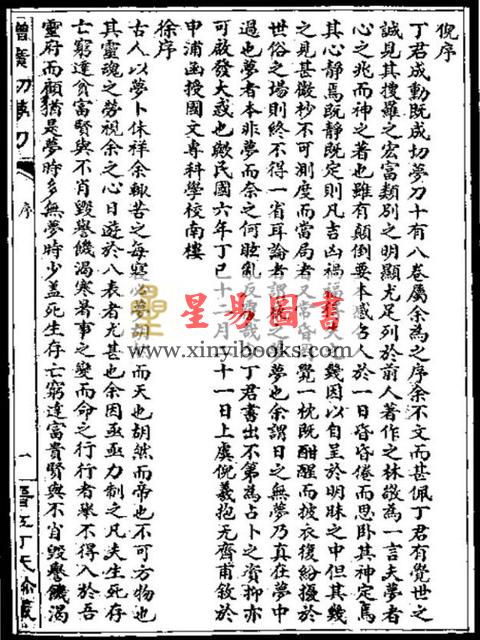 倪序
丁君成勳既成切夢刀十有八卷屬余為之序余不文而甚佩丁君有覺世之
誠見其搜羅之宏富類別之明顯尤足列於前人著作之林敬為一言夫夢者
心之兆而神之著也雖有顛倒要本感召人於一日昏昏倦而思卧其神定焉
其心靜焉既靜既定則凡吉凶禍福
幾因以自呈於明昧之中但其幾
之見甚微杪不可測度而當局者又常昏
覺一枕既酣醒而披衣復紛擾於
世俗之場則終不得一省耳論者謂
夢也余謂日之無夢乃真在夢中
過也夢者本非夢而奈之何眩亂
丁君書出不第為占卜之資抑亦
可啟發大惑也歟民國六年丁巳十二月
十一日上虞倪羲抱无齋甫敘於
申浦函授國文專科學校南樓
徐序
古人以夢卜休祥余輒苦之每寢必夢
而天也胡然而帝也不可方物也
其靈魂之勞視余之心日遊於八表者尤甚也余因亟亟力制之凡夫生死存
亡窮達貪富賢與不肖毀譽饑渴寒暑事之變而命之行行者舉不得入於吾
靈府而顧猶是夢時多無夢時少蓋死生存亡窮達富貴賢與不肖毀譽饑渴
增廣切夢刀
序
一
星易圖書
www.xinyibooks.com
www.xinyibooks.com